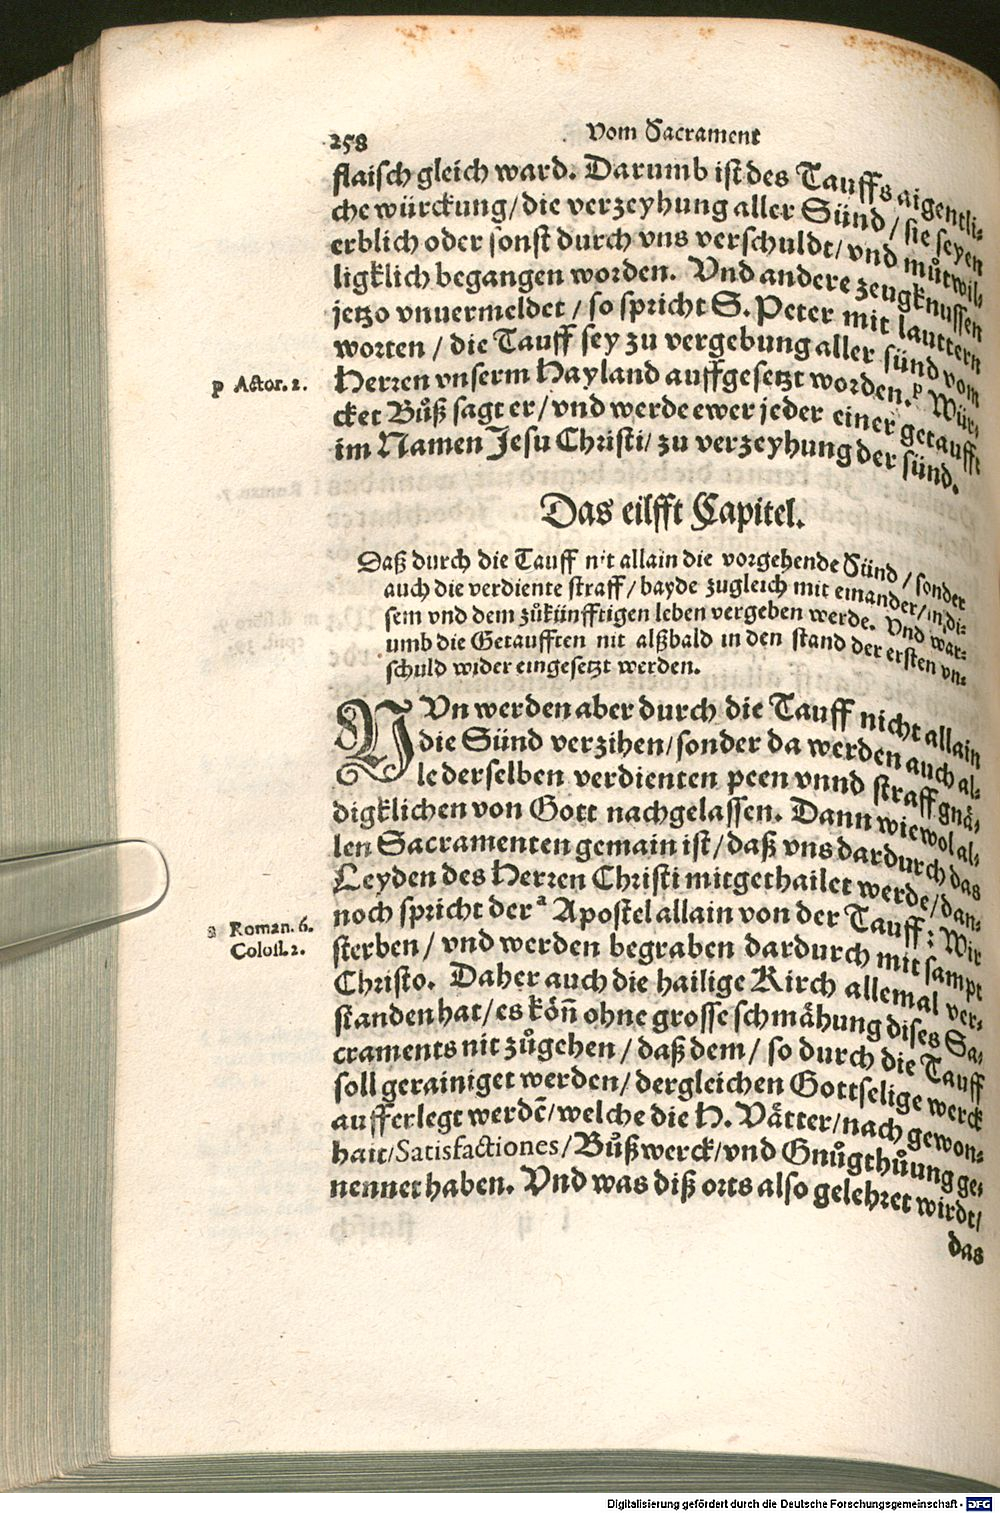 258
Vom Sacrament
flaisch gleich ward. Darumb ist des Tauffs aigentli-
che würckung/die verzeyhung aller Sünd/sie seyen
erblich oder sonst durch vns verschuldt/vnd můtwil-
ligklich begangen worden. Vnd andere zeugknussen
jetzo vnuermeldet/so spricht S. Peter mit lauttern
worten/die Tauff sey zu vergebung aller sünd vom
p Actor. 2.
Herren vnserm Hayland auffgesetzt worden.ᵖ Wür-
cket Bůß sagt er/vnd werde ewer jeder einer getaufft
im Namen Jesu Christi/zu verzeyhung der sünd.
Das eilfft Capitel.
Daß durch die Tauff nit allain die vorgehende Sünd/sonder
auch die verdiente straff/bayde zugleich mit einander/in di-
sem vnd dem zůkünfftigen leben vergeben werde. Vnd war-
umb die Getaufften nit alßbald in den stand der ersten vn-
schuld wider eingesetzt werden.
NUn werden aber durch die Tauff nicht allain
die Sünd verzihen/sonder da werden auch al-
le derselben verdienten peen vnnd straff gnä-
digklichen von Gott nachgelassen. Dann wiewol al-
len Sacramenten gemain ist/daß vns dardurch das
Leyden des Herren Christi mitgethailet werde/dan-
a Roman. 6.
Coloss. 2.
noch spricht der ᵃ Apostel allain von der Tauff: Wir
sterben/vnd werden begraben dardurch mit sampt
Christo. Daher auch die hailige Kirch allemal ver-
standen hat/es köñ ohne grosse schmähung dises Sa-
craments nit zůgehen/daß dem/so durch die Tauff
soll gerainiget werden/dergleichen Gottselige werck
aufferlegt werdē/welche die H. Vätter/nach gewon-
hait/Satisfactiones/Bůßwerck/vnd Gnůgthůung ge-
nennet haben. Vnd was diß orts also gelehret wirdt/
das
Digitalisierung gefördert durch die Deutsche Forschungsgemeinschaft - DFG